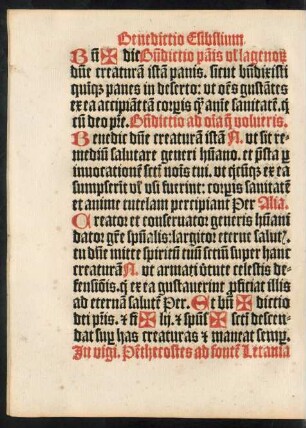 Benedictio Esibilium
Bn̄ ✠ dic Bn̄dictio pāis vl̓ lagenoꝝ
dn̄e creaturā istā panis. sicut bn̄dixisti
quīqꝫ panes in deserto: vt oēs gustātes
ex ea accipiāt tā corꝑis q̄ aīe sanitatē. q̄
cū deo pr̄e. Bn̄dictio ad oīa q̄ volueris.
Benedic dn̄e creaturā istā N. vt sit re-
mediū salutare generi hūano. et p̄sta ꝑ
inuocationē sctī noīs tui. vt q̄cūqꝫ ex ea
sumpserit vl̓ vsus fuerint: corꝑis sanitatē
et anime tutelam percipiant Per Alia.
Creator et conseruator generis hūani
dator gr̄e spūalis: largitor eterne salut̓.
tu dn̄e mitte spiritū tuū sctm̄ super hanc
creaturā N. vt armati v̓tute celestis de-
fensiōis. q̄ ex ea gustauerint ꝓficiat illis
ad eternā salutē Per. Et bn̄ ✠ dictio
dei pr̄is. & fi ✠ lij. & spūs ✠ scti descen-
dat suꝑ has creaturas & maneat semꝑ.
In vigi. Pēthecostes ad fontē Letania